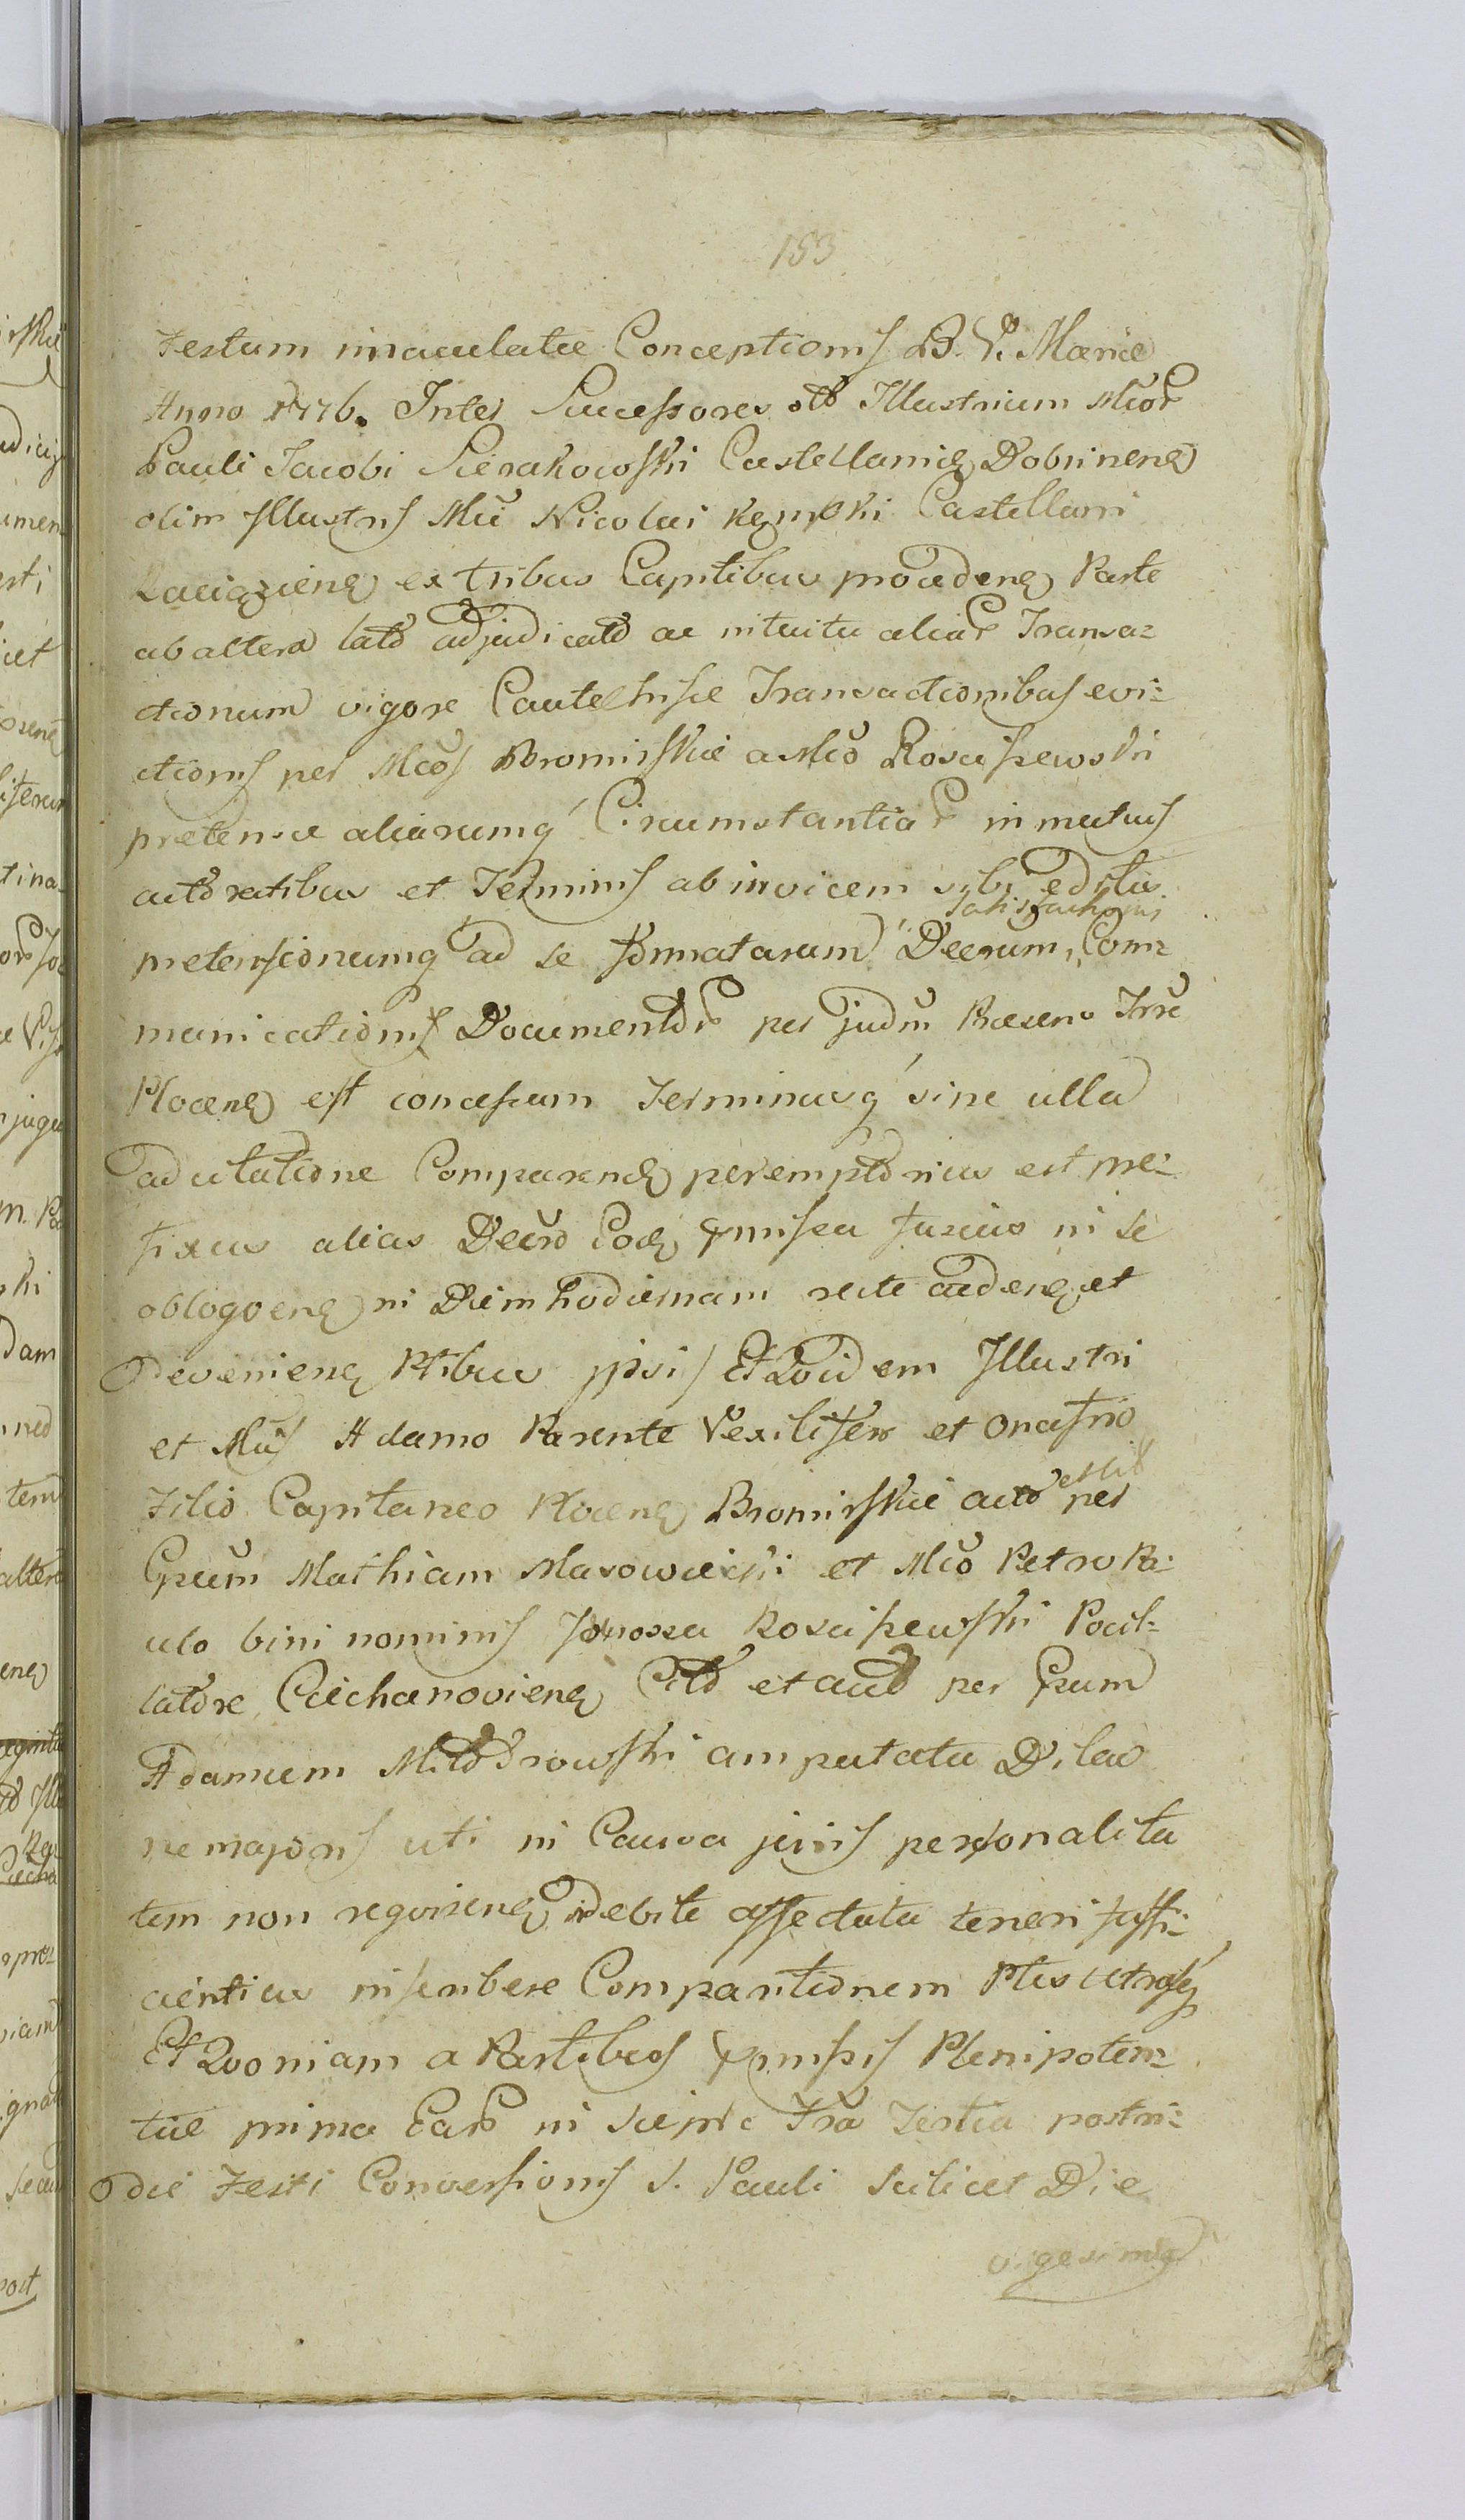 153
Festum imaculatæ Conceptionis B. V. Mariæ
Anno 1776. Inter Successores olb Illustrium Mcor
Pauli Jacobi Sierakowski Castellanię Dobrinenę
olim Illustris Mci Nicolai Kęmpski Castellani
Raciązienę ex tribus Capitibus procedenę Parte
ab altera lato adjudicato ac intuitu aliar Transa=
ctionum vigore Transactionibus evi=
ctionis per Mcos Bromirskie a Mco Rosciszewski
prætensæ aliarumq Circumstantiar in mutuis
actoratibus et Terminis ab invicem sibi editis
satisfactionis
pretensionumq ad se formatarum Decrum, Com=
municationis Documentor per judm Præsens Trre
Plocenę est concessum Terminusq sine ulla
adcitatione Comparendę peremptorius est præ=
fixus alias Decro Eodę ꝓmissa fusius in se
obloqvenę in Diem hodiernam recte cadenę et
Devenienę Ptibus ipsis Et Qvidem Illustri
et Mcis Adamo Parente Vexilifero et Onofrio
Filio Capitaneo Plocenę Bromirskie acto per
Gsum Mathiam Mazowiecki et Mco Petro Pa=
ulo bini nominis Junosza Rosciszewski Pocil=
latore Ciechanovienę Cito et per Gsum
Adamum amputata Dilao
ne majoris uti in Causa juris personalita
tem non reqvirenę debite affectata teneri suffi=
cientius inscribere Comparitionem Ptis utrasq
Et Qvoniam a Partibus ꝓmissis Plenipoten=
tiæ prima Ear in Fra Tertia postri=
die Festi Conversionis S. Pauli scilicet Die
vigesima